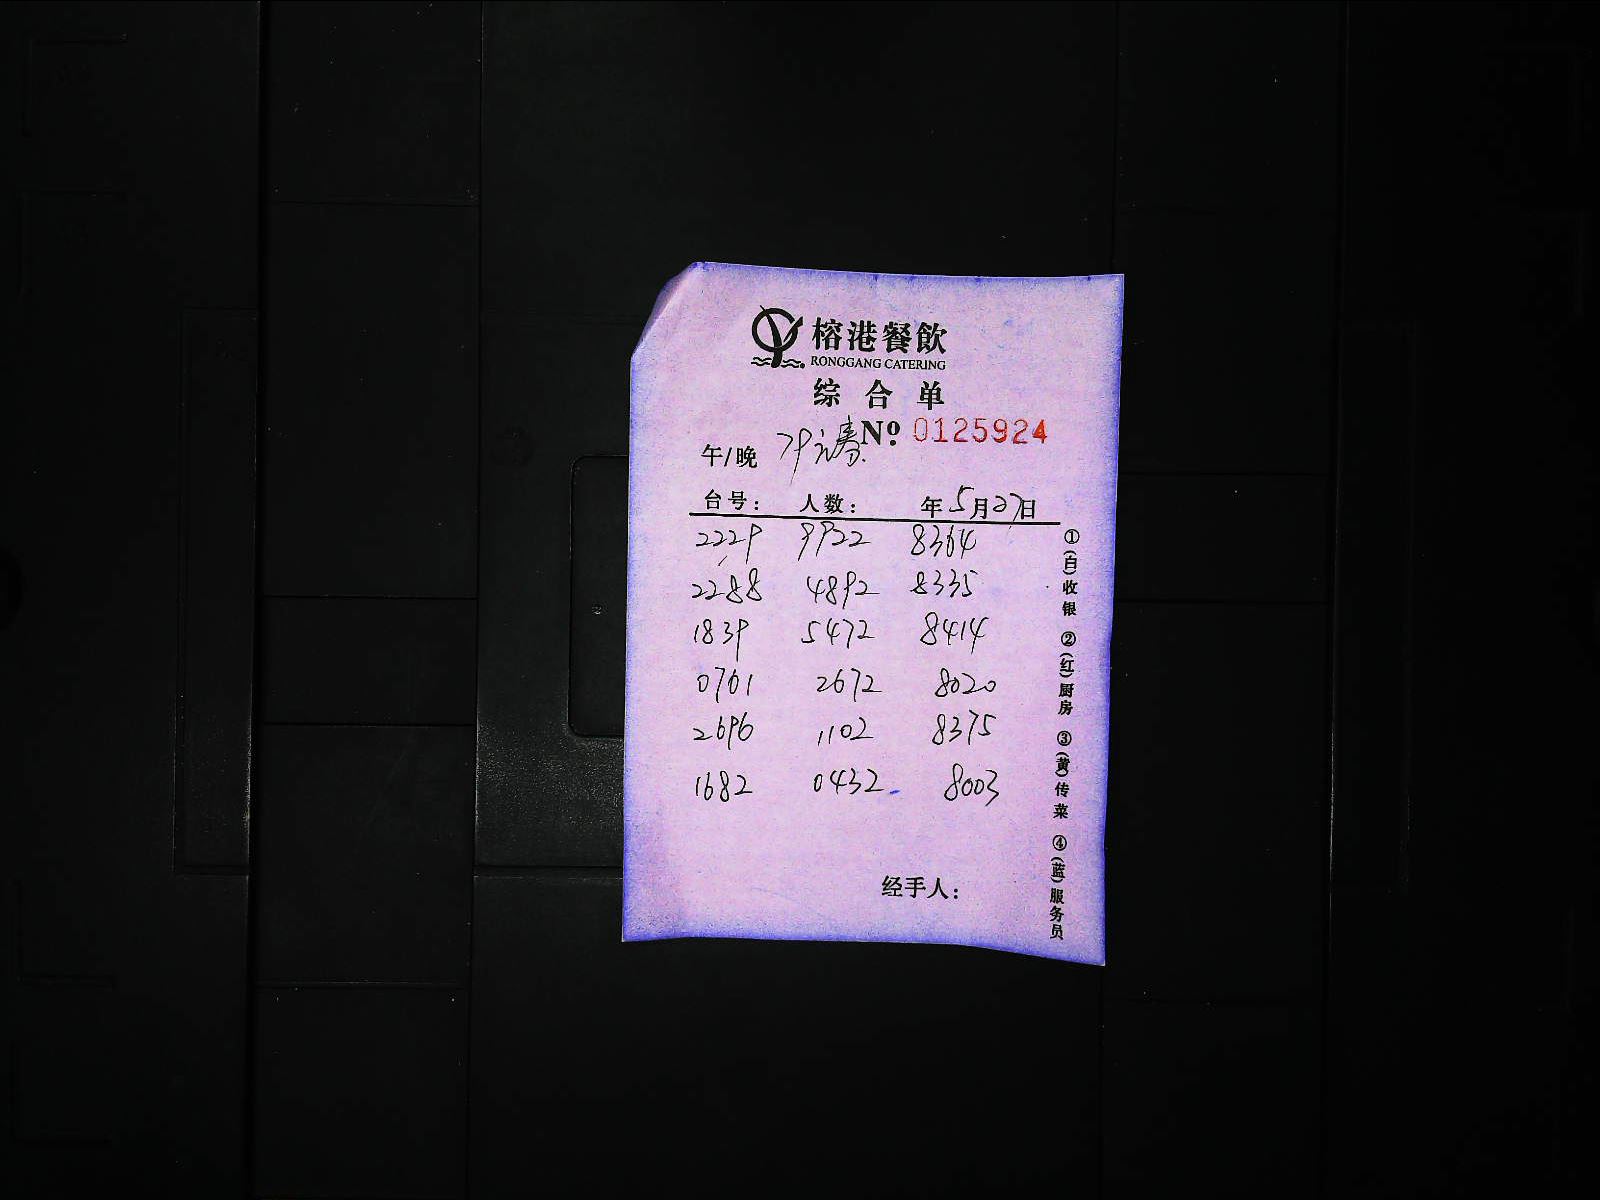 榕港餐飲
RONGGANG CATERING
综合单
№ 0125924
午/晚
台号: 人数: 年5月27日
2229 9922 8364
2288 4892 8335
1839 5472 8414
0761 2672 8020
2696 1102 8375
1682 0432 8003
经手人:
①(白)收银 ②(红)厨房 ③(黄)传菜 ④(蓝)服务员